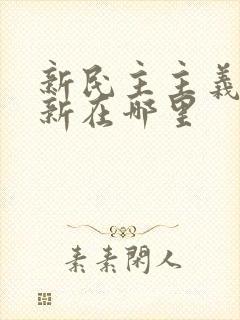 新民主主義
新在哪里
素素閑人